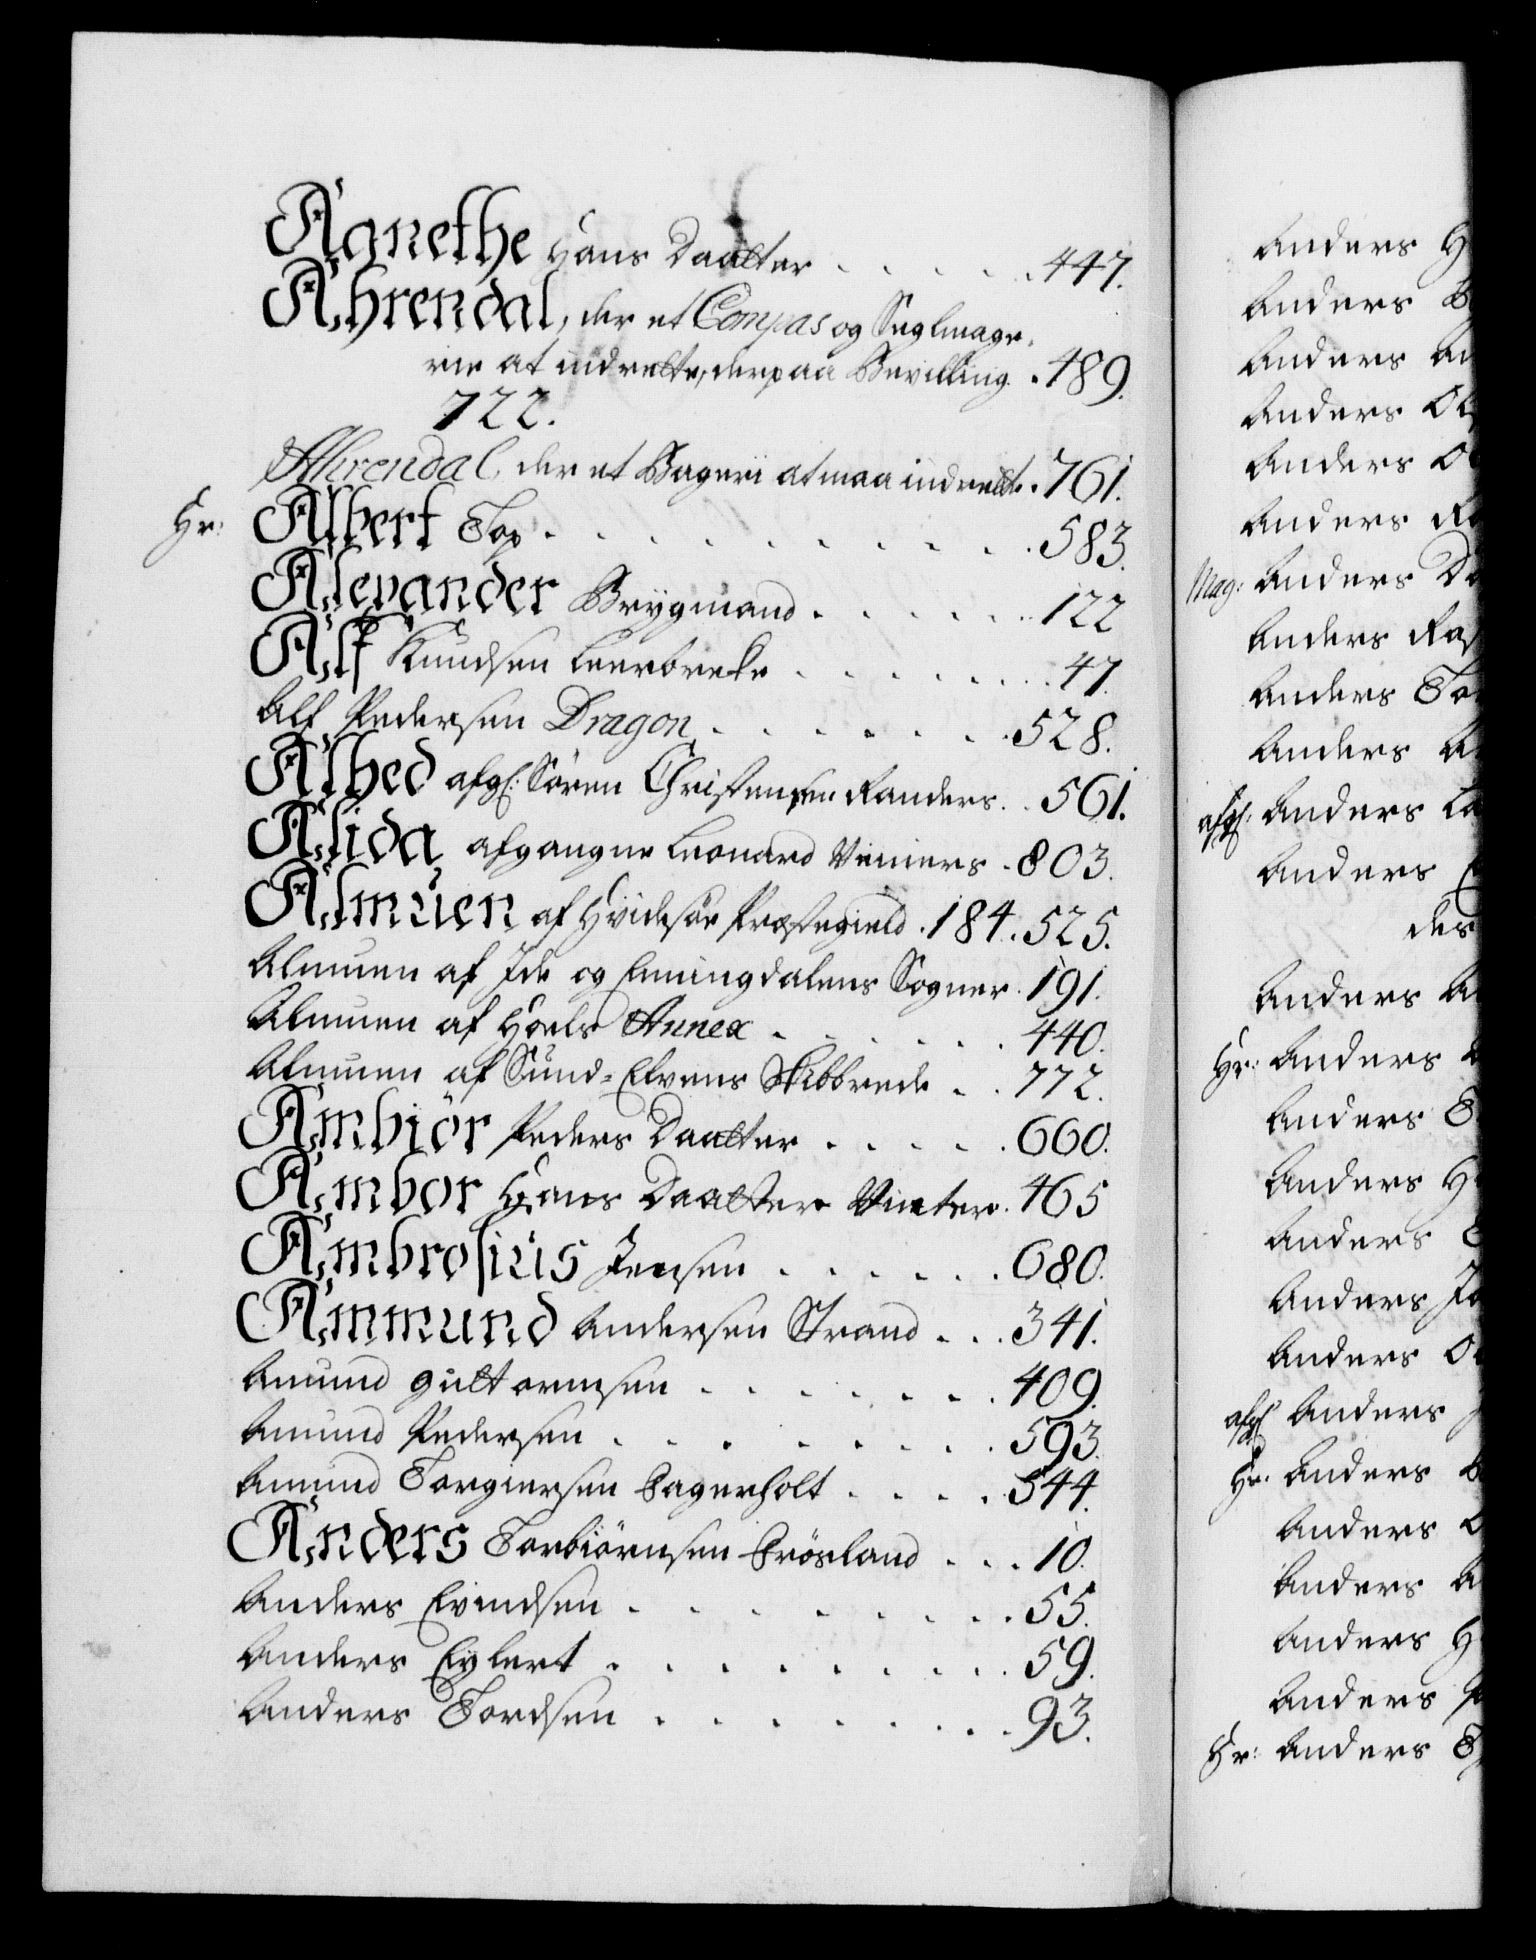 Agnethe Hans Daatter . . . . . 447.
Ahrendal, der et Compas og Seglmage-
rie at indrette, derpaa Bevilling . 489.
722.
Ahrendal, der et Bageri at maa indrette . 761.
Hr: Albert Top . . . . . . . . . . 583.
Alexander Brygmand . . . . . . 122
Alf Knudsen Leerbrek . . . . . . . 47.
Alf Pedersen Dragon . . . . . . . 528.
Alhed afg: Sören Christensen Randers . . 561.
Alida afgangne Leonard Viniers . 803.
Almuen af Hvidesöe Præstegield . 184. 525.
Almuen af Ide og Enningdalens Sogner . 191.
Almuen af Hoels Annex . . . . . . 440.
Almuen af Sund-Elvens Skibbrede . . 772.
Ambiör Peders Daatter . . . . . 660.
Ambor Hans Daatter Vinter . 465
Ambrosius Jensen . . . . . . 680.
Ammund Andersen Strand . . . 341.
Amund Guttormsen . . . . . . . 409.
Amund Pedersen . . . . . . . . 593.
Amund Torgiersen Fagerholt . . . . 544.
Anders Torbiörnsen Frösland . . . 10.
Anders Evindsen . . . . . . . . 55.
Anders Eylert . . . . . . . . . 59.
Anders Tordsen . . . . . . . . . 93.
Anders H
Anders
Anders An
Anders Ol
Anders O
Anders Ra
Mag: Anders Da
Anders Ras
Anders To
Anders A
afg: Anders La
Anders
des
Anders A
Hr: Anders
Anders
Anders H
Anders
Anders Jo
Anders O
afg: Anders
Hr: Anders
Anders
Anders A
Anders H
Anders P
Hr: Anders T